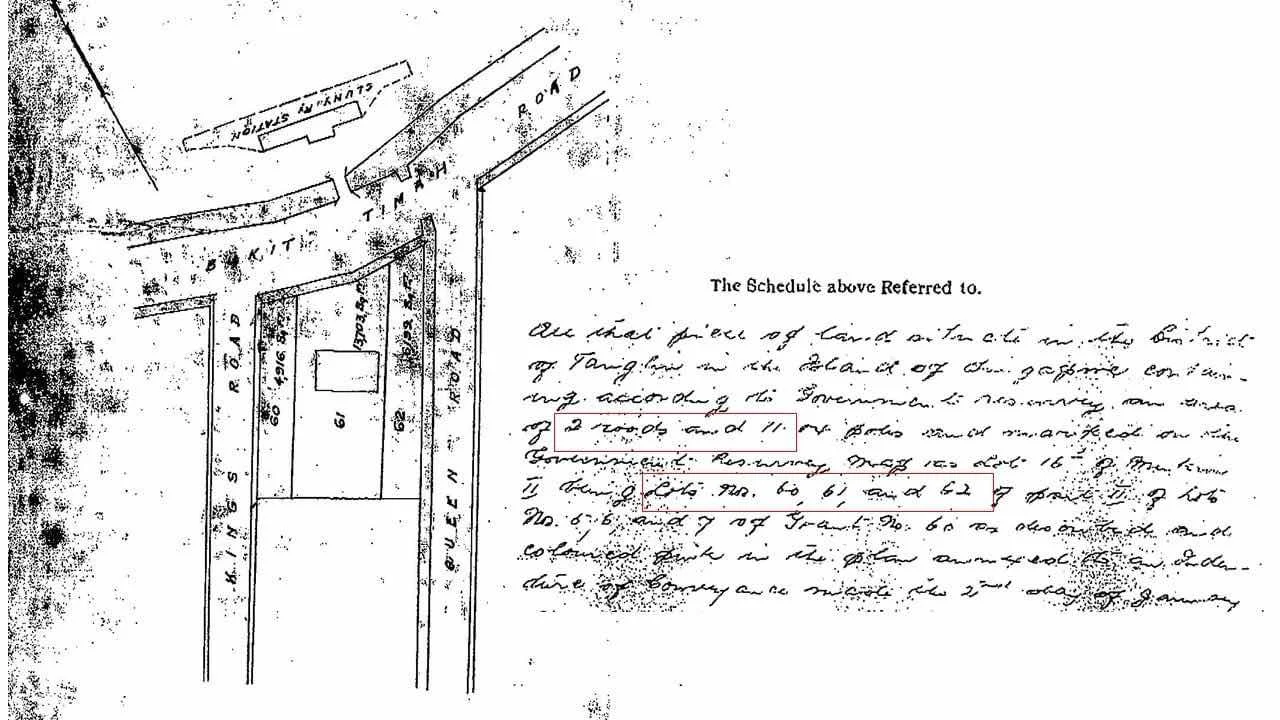 CLUNY RY STATION
BUKIT TIMAH ROAD
KING'S ROAD
60
4,916 Sq Ft
61
13,703 Sq Ft
62
Sq Ft
QUEEN ROAD
The Schedule above Referred to.
All that piece of land situate in the District
of Tanglin in the Island of Singapore contain-
ing according to Government resurvey an area
of 2 roods and 11. poles and marked on the
Government Resurvey Map as Lot 16 of
II being Lots Nos. 60, 61, and 62 of part II of Lots
No. 5, 6, and 7 of Grant No. 60 as and
coloured pink in the plan annexed to an Inden-
ture of Conveyance made the 2nd day of January